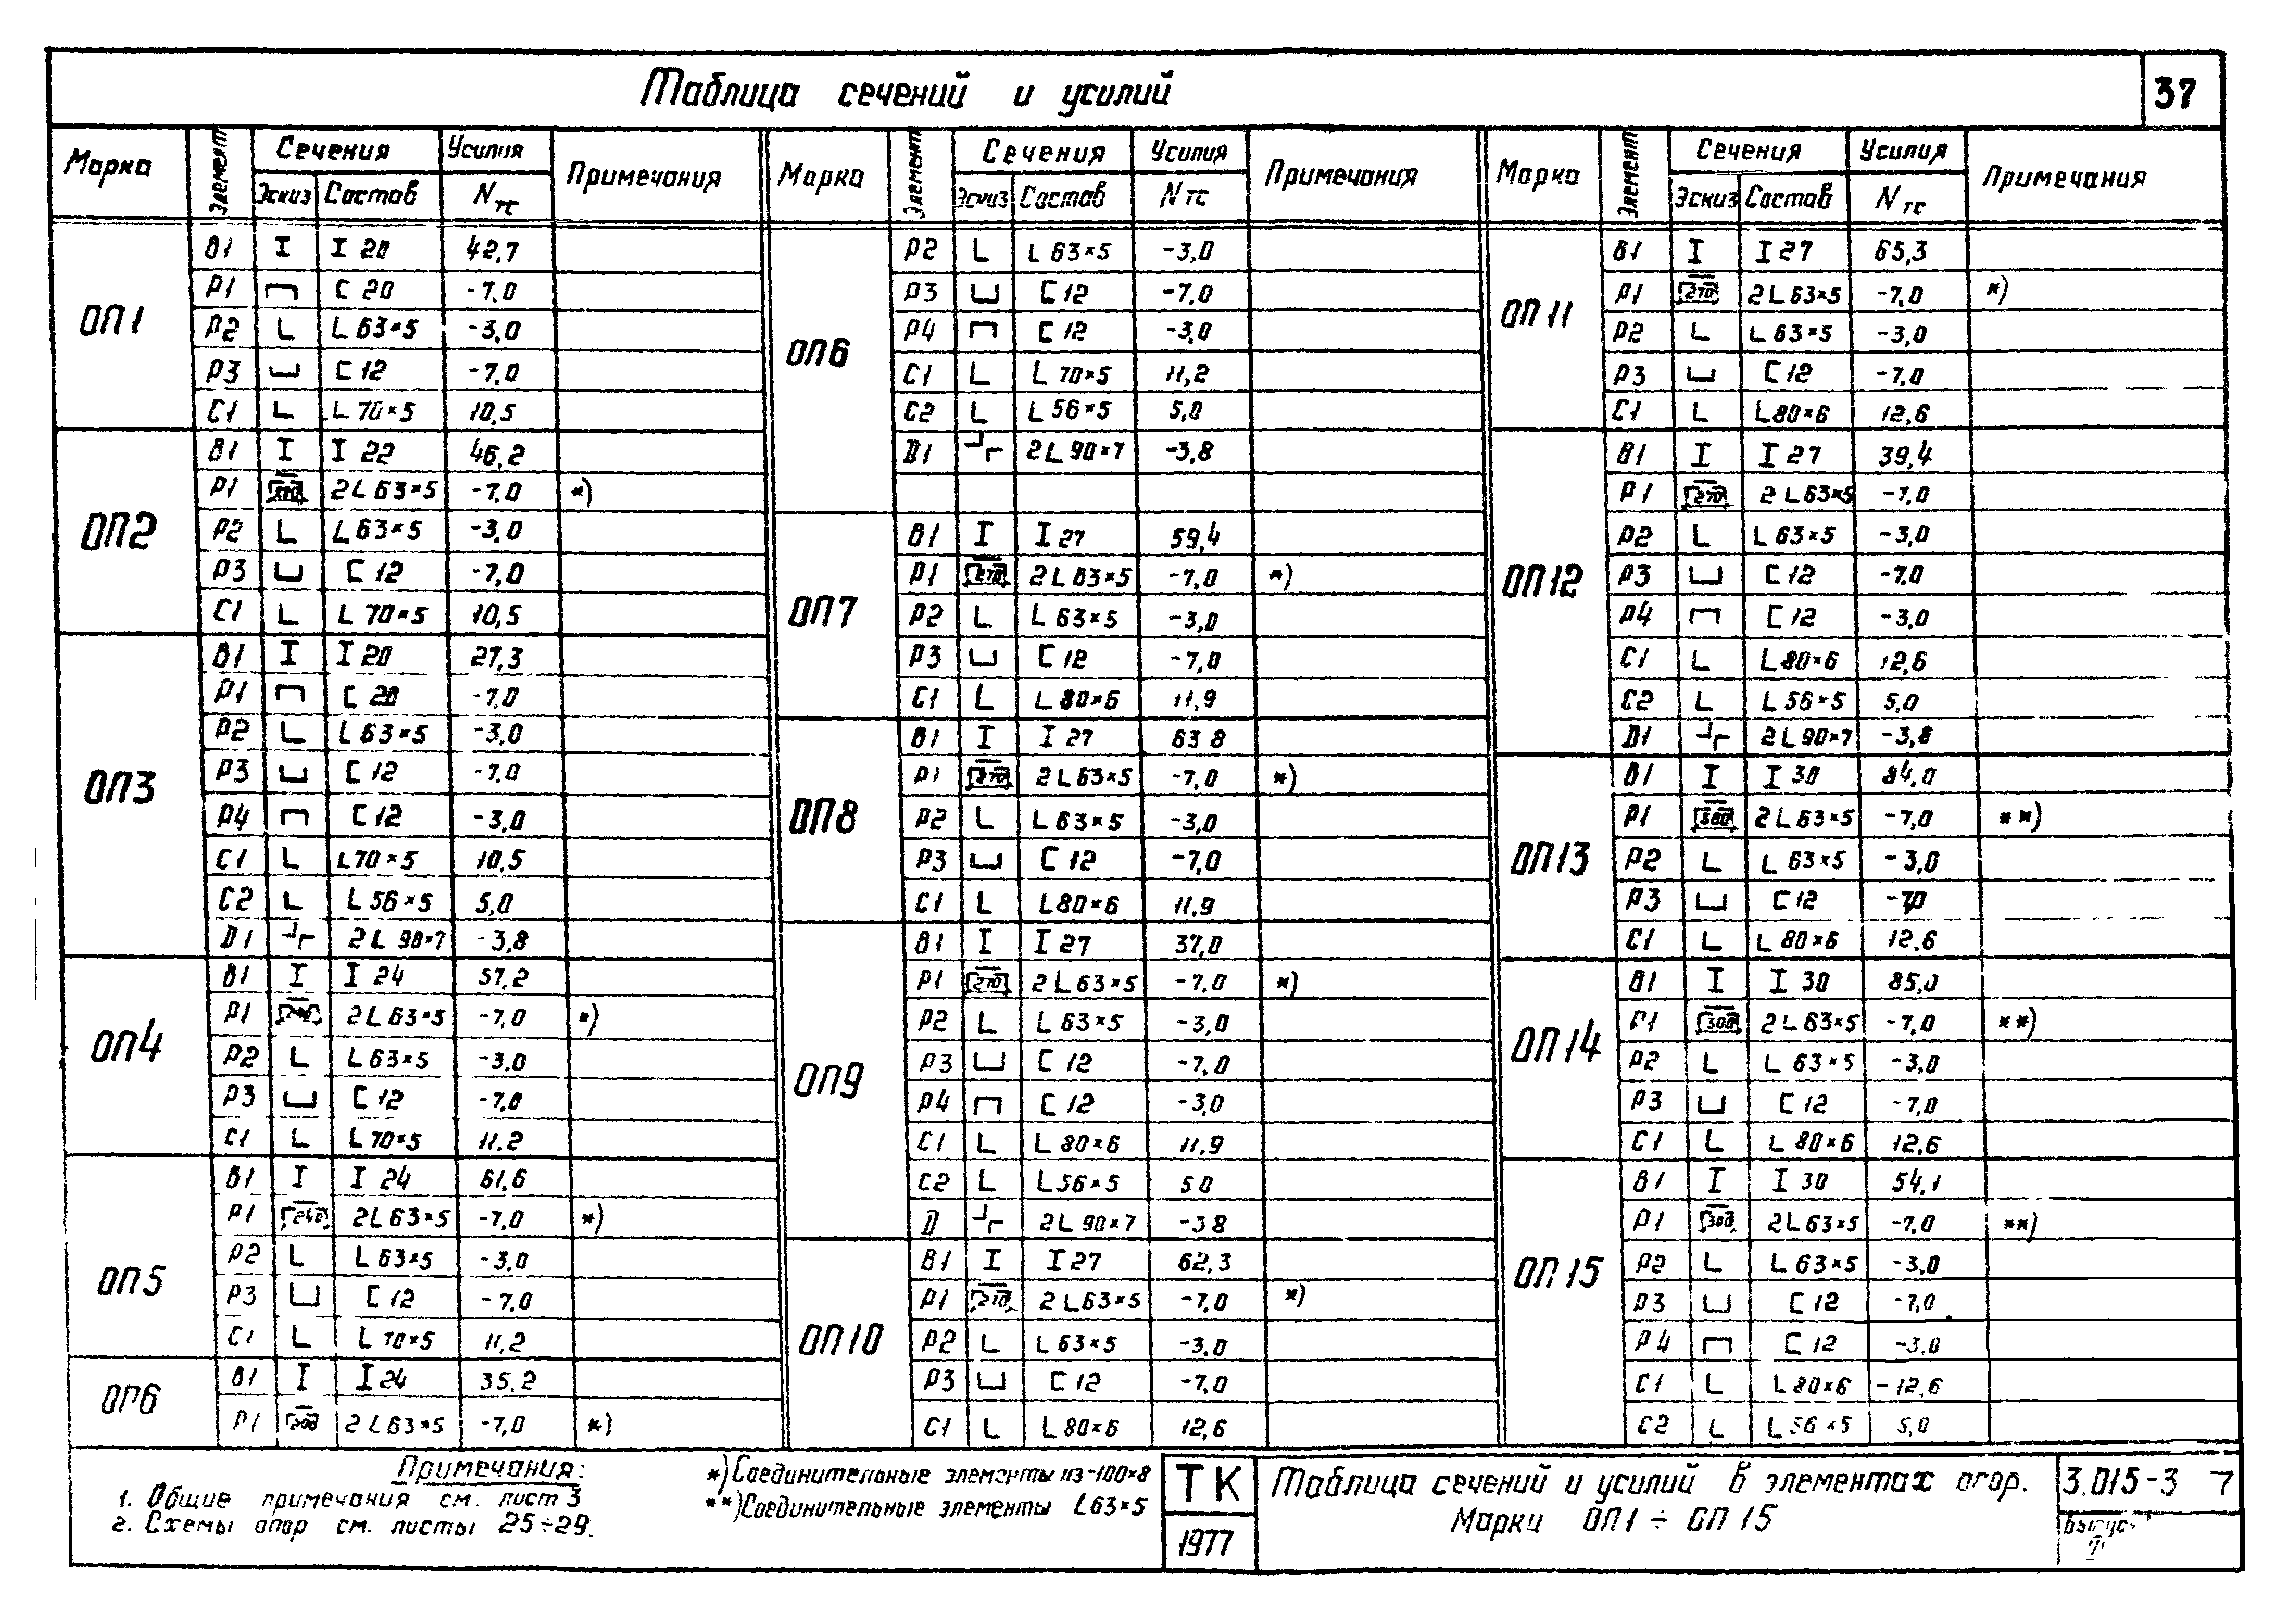 Таблица сечений и усилий 37
Марка Элемент Сечения Усилия Примечания Марка Элемент Сечения Усилия Примечания Марка Элемент Сечения Усилия Примечания
Эскиз Состав Nтс Эскиз Состав Nтс Эскиз Состав Nтс
ОП1
В1 I I 20 42,7
Р1 [ 20 -7,0
Р2 L L 63×5 -3,0
Р3 [ 12 -7,0
С1 L L 70×5 10,5
ОП2
В1 I I 22 46,2
Р1 2L 63×5 -7,0 *)
Р2 L L 63×5 -3,0
Р3 [ 12 -7,0
С1 L L 70×5 10,5
ОП3
В1 I I 20 27,3
Р1 [ 20 -7,0
Р2 L L 63×5 -3,0
Р3 [ 12 -7,0
Р4 [ 12 -3,0
С1 L L 70×5 10,5
С2 L L 56×5 5,0
D1 2L 90×7 -3,8
ОП4
В1 I I 24 57,2
Р1 2L 63×5 -7,0 *)
Р2 L L 63×5 -3,0
Р3 [ 12 -7,0
С1 L L 70×5 11.2
ОП5
В1 I I 24 61,6
Р1 240 2L 63×5 -7,0 *)
Р2 L L 63×5 -3,0
Р3 [ 12 -7,0
С1 L L 70×5 11,2
ОП6
В1 I I 24 35,2
Р1 2L 63×5 -7,0 *)
ОП6
Р2 L L 63×5 -3,0
Р3 [ 12 -7,0
Р4 [ 12 -3,0
С1 L L 70×5 11,2
С2 L L 56×5 5,0
D1 2L 90×7 -3,8
ОП7
В1 I I 27 59,4
Р1 270 2L 63×5 -7,0 *)
Р2 L L 63×5 -3,0
Р3 [ 12 -7,0
С1 L L 80×6 11,9
ОП8
В1 I I 27 63 8
Р1 270 2L 63×5 -7,0 *)
Р2 L L 63×5 -3,0
Р3 [ 12 -7,0
С1 L L 80×6 11,9
ОП9
В1 I I 27 37,0
Р1 270 2L 63×5 -7,0 *)
Р2 L L 63×5 -3,0
Р3 [ 12 -7,0
Р4 [ 12 -3,0
С1 L L 80×6 11,9
С2 L L 56×5 5 0
D 2L 90×7 -3 8
ОП10
В1 I I 27 62,3
Р1 270 2L 63×5 -7,0 *)
Р2 L L 63×5 -3,0
Р3 [ 12 -7,0
С1 L L 80×6 12,6
ОП11
В1 I I 27 65,3
Р1 270 2L 63×5 -7,0 *)
Р2 L L 63×5 -3,0
Р3 [ 12 -7,0
С1 L L 80×6 12,6
ОП12
В1 I I 27 39,4
Р1 270 2L 63×5 -7,0
Р2 L L 63×5 -3,0
Р3 [ 12 -7,0
Р4 [ 12 -3,0
С1 L L 80×6 12,6
С2 L L 56×5 5,0
D1 2L 90×7 -3,8
ОП13
В1 I I 30 84,0
Р1 300 2L 63×5 -7,0 **)
Р2 L L 63×5 -3,0
Р3 [ 12 -7,0
С1 L L 80×6 12.6
ОП14
В1 I I 30 85,0
Р1 300 2L 63×5 -7,0 **)
Р2 L L 63×5 -3,0
Р3 [ 12 -7,0
С1 L L 80×6 12,6
ОП15
В1 I I 30 54,1
Р1 300 2L 63×5 -7,0 **)
Р2 L L 63×5 -3,0
Р3 [ 12 -7,0
Р4 [ 12 -3,0
С1 L L 80×6 -12,6
С2 L L 56×5 5,0
Примечания:
1. Общие примечания см. лист 3
2. Схемы опор см. листы 25÷29.
*) Соединительные элементы из -100×8
**) Соединительные элементы L63×5
ТК
1977
Таблица сечений и усилий в элементах опор.
Марки ОП1 ÷ ОП15
3.015-3
Выпуск